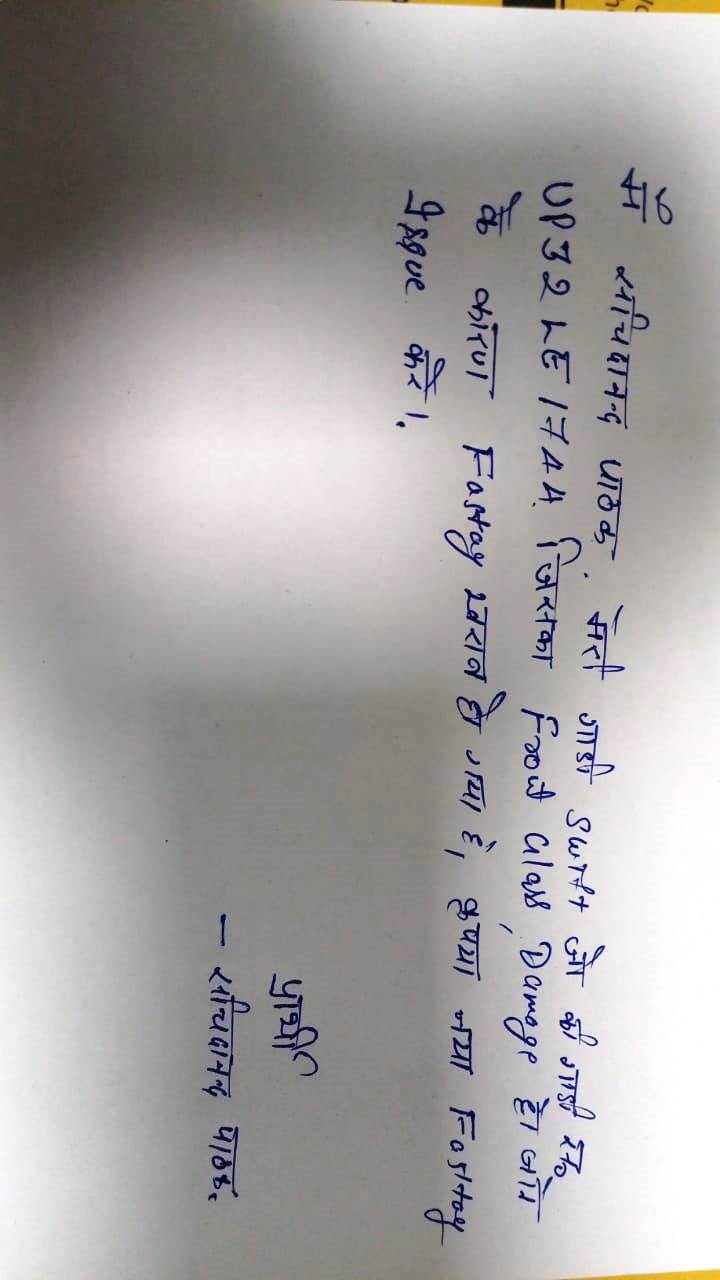 मैं सचिदानन्द पाठक, मेरी गाडी Swift जो की गाडी सं०
UP32 LE 1744. जिसका Front Glass, Damage हो जाने
के कारण Fastag खराब हो गया है, कृपया नया Fastag
Issue करे।.
प्रार्थी
– सचिदानन्द पाठक.